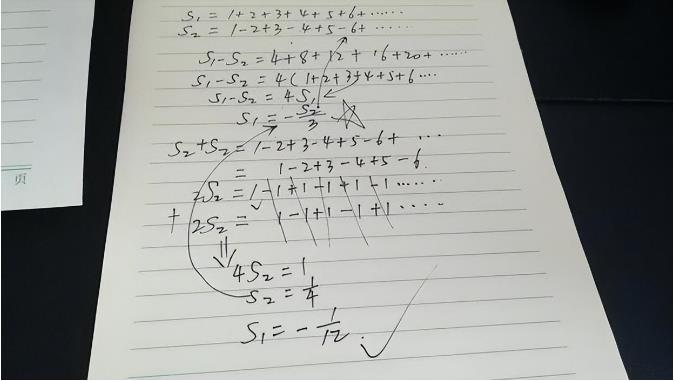 S₁ = 1+2+3+4+5+6+······
S₂ = 1-2+3-4+5-6+ ······
S₁-S₂ = 4+8+12+16+20+ ······
S₁-S₂ = 4(1+2+3+4+5+6····
S₁-S₂ = 4S₁
S₁ = -S₂/3
S₂+S₂ = 1-2+3-4+5-6+ ···
= 1-2+3-4+5-6.
2S₂ = 1-1+1-1+1-1······
+ 2S₂ = 1-1+1-1+1····
4S₂ = 1
S₂ = 1/4
S₁ = -1/12.
页